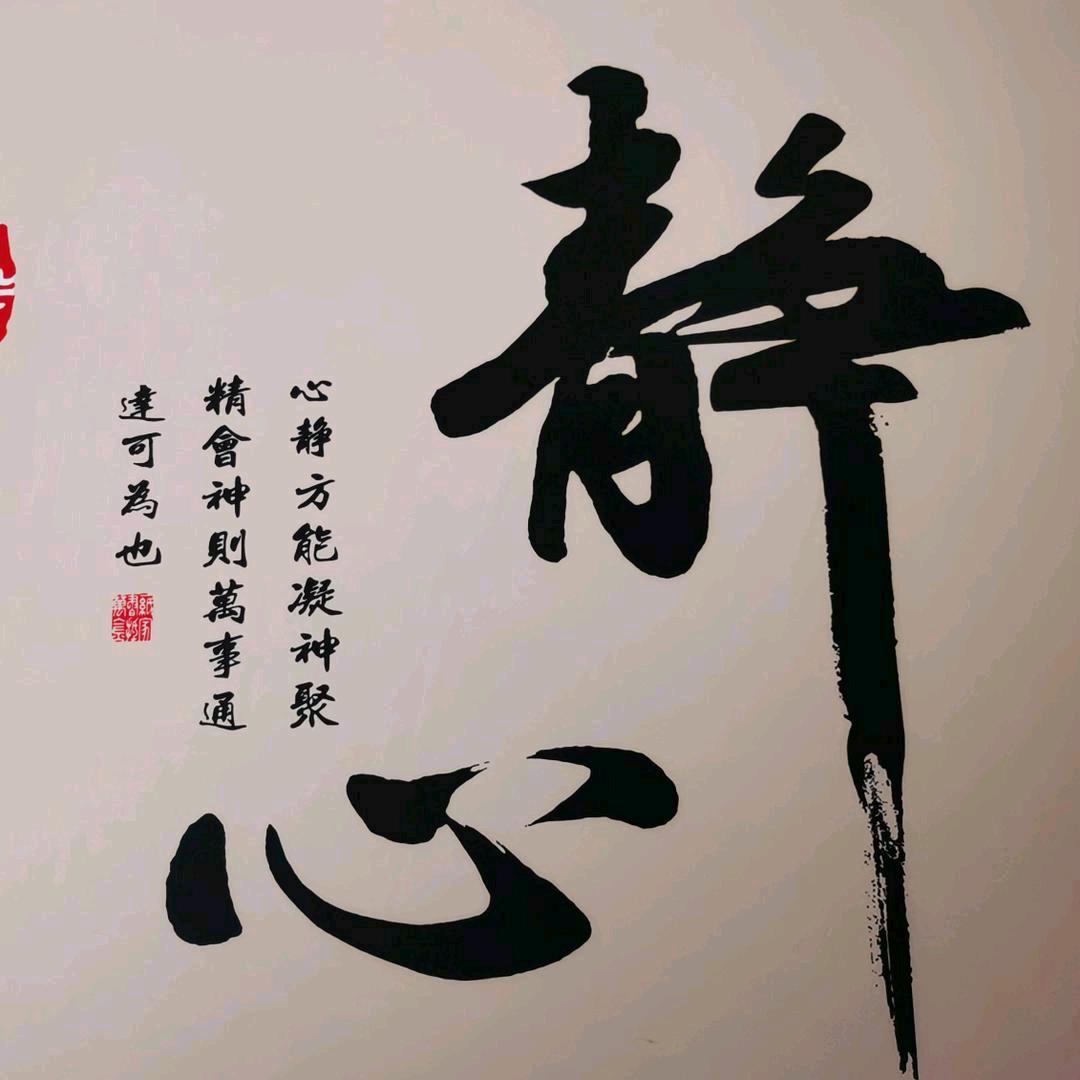 静心
心静方能凝神聚
精會神則萬事通
達可為也